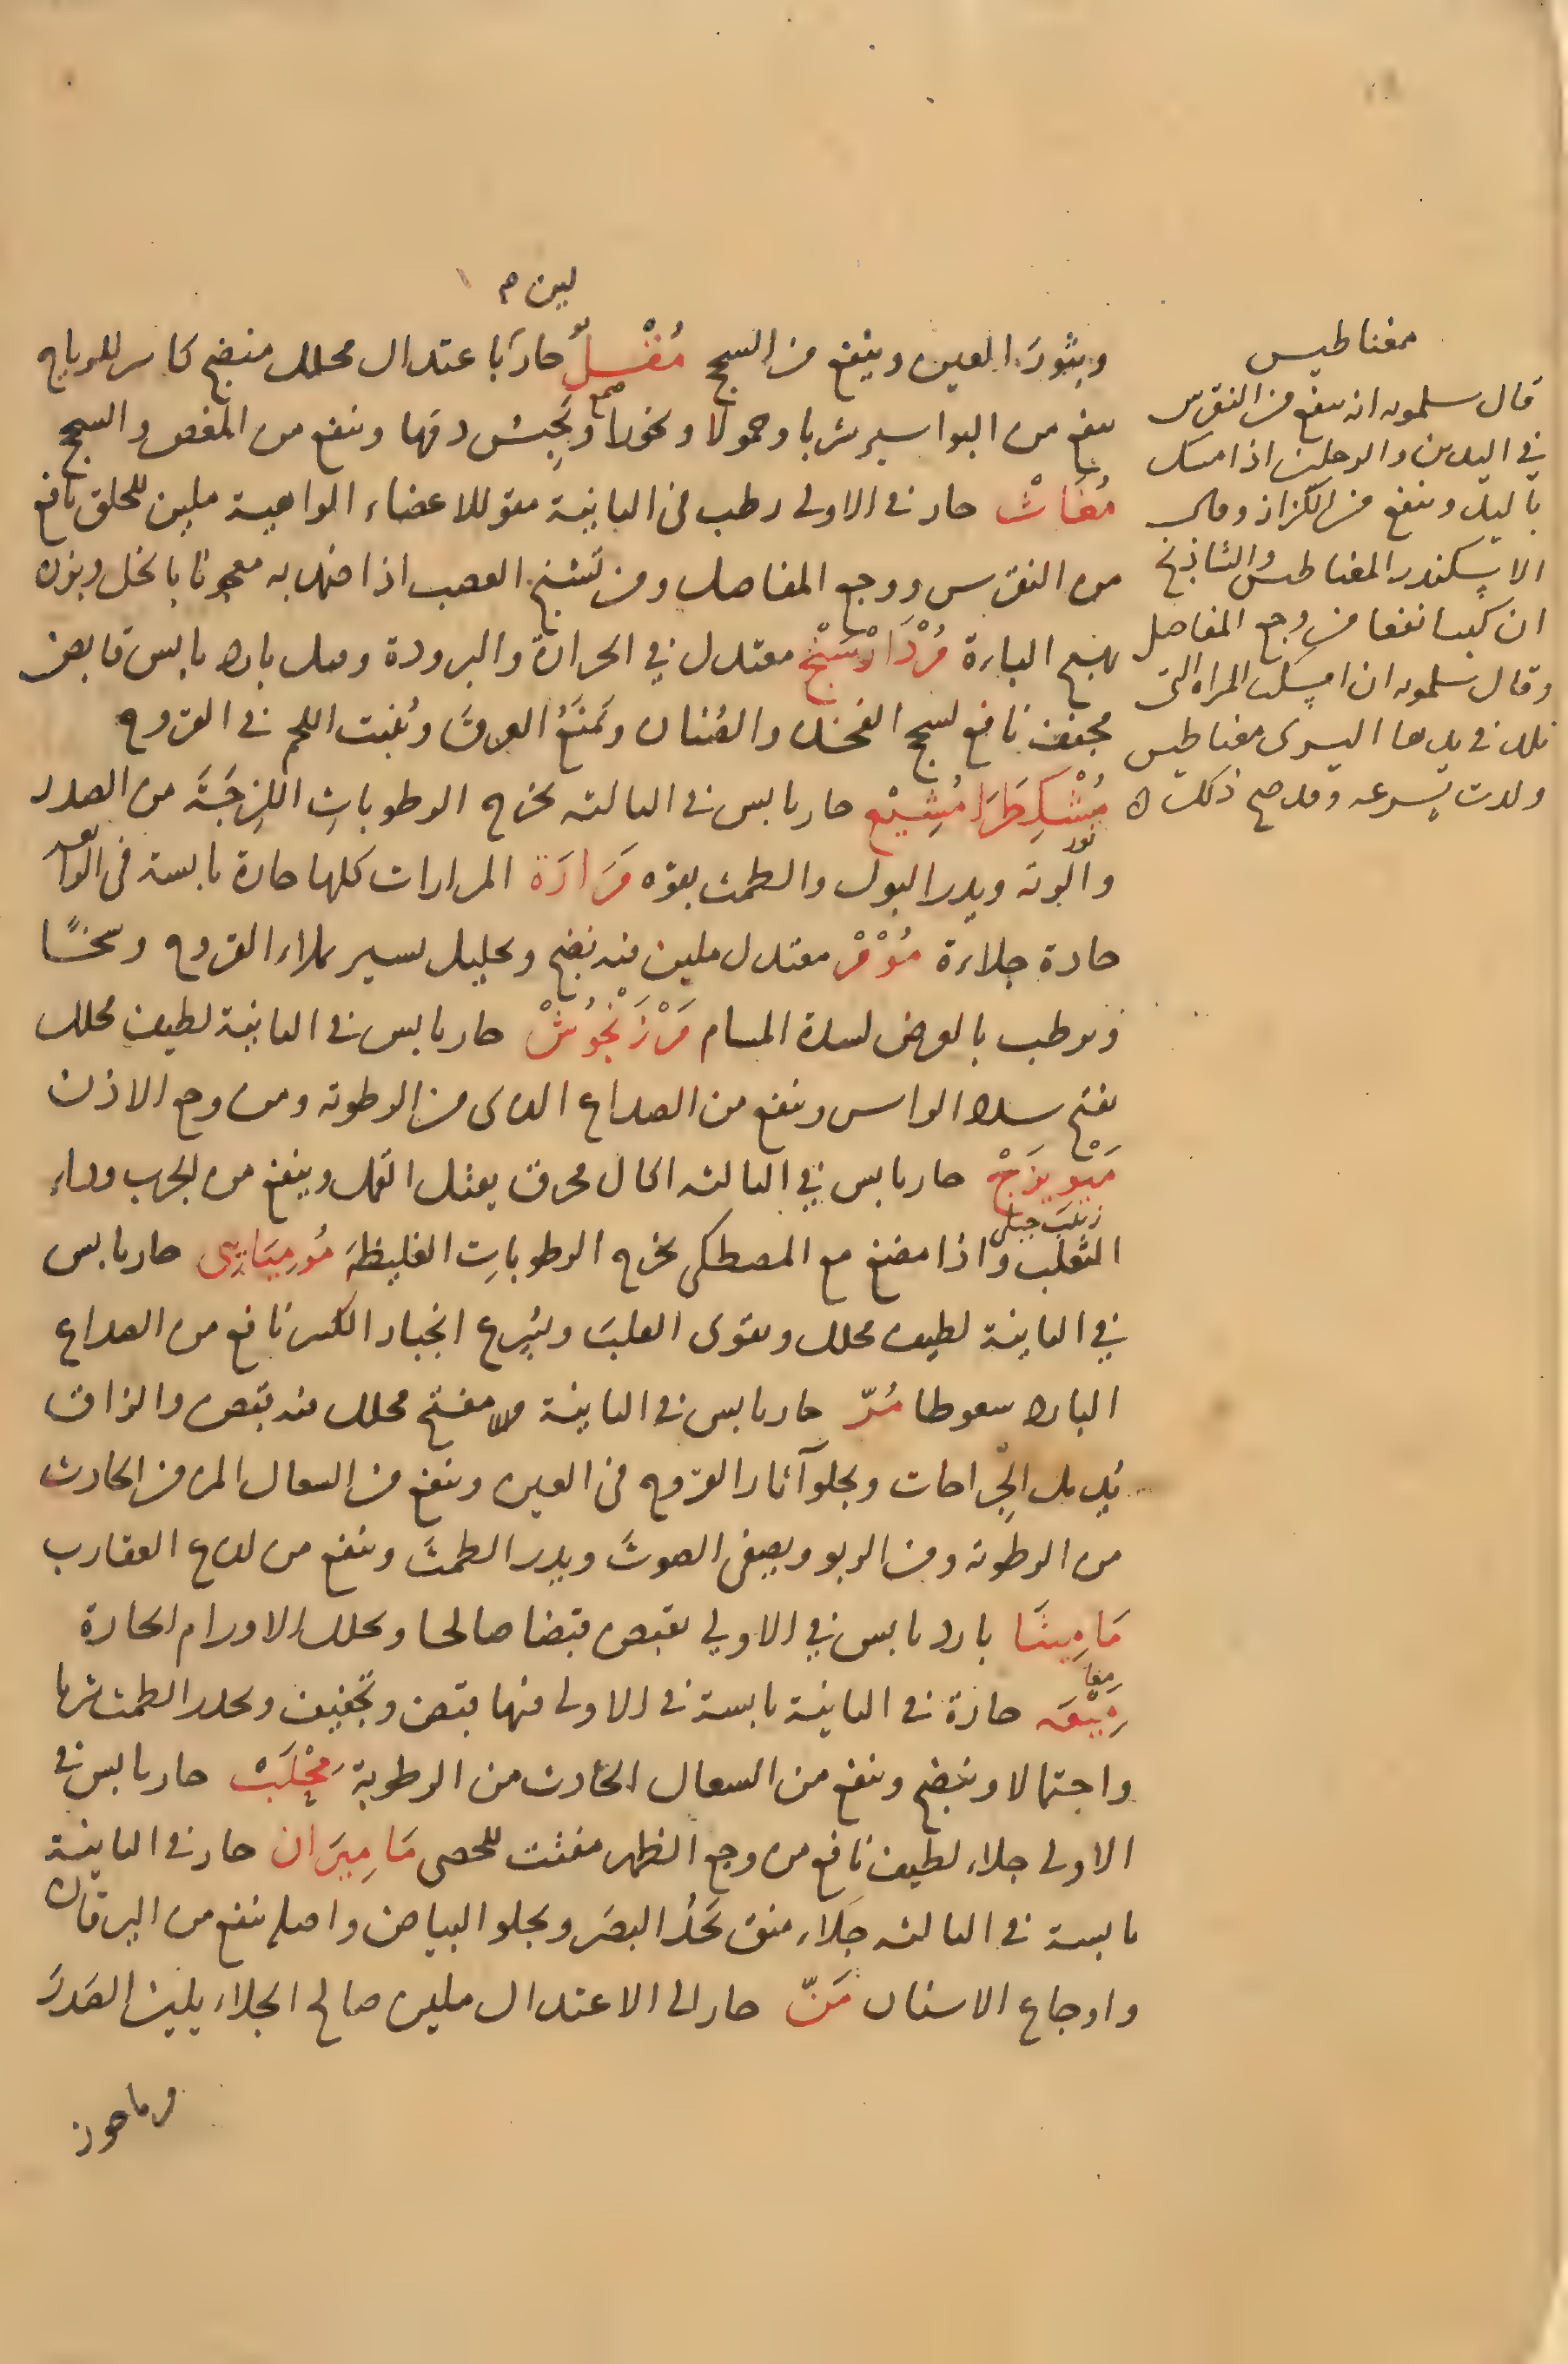 لين م
وبثور العين وينفع من السحج مُقْلٌ حار باعتدال محلل منضج كاسر للرياح
ينفع من البواسير شربا وحمولا وبخورا ويحبس دمها وينفع من المغص والسحج
صمغ
مُغَاثْ حار في الاولى رطب في الثانية مقو للاعضاء الواهية ملين للحلق نافع
من النقرس ووجع المفاصل ومن تشنج العصب اذا ضمد به معجونا بالخل وبزره
يهيج الباءة مُرْدَارْسَنْجْ معتدل في الحرارة والبرودة وميل بارد يابس قابض
مجفف نافع لسحج الفخذ والصُنان وَيمنَعُ العرقَ وينبت اللحم في القروح
مُشْكِطَرَامُشِيْع حار يابس في الثالثة يخرج الرطوباتِ اللزِجَةَ من الصدر
والرئه ويدر البول والطمث بقوه مَرَارَة المرارات كلها حارة يابسة في الرابعة
حادة جلاءة مُوْمْ معتدل ملين فيه نضج وتحليل يسير يملاء القروح وسخًا
ويرطب بالعرض لسده المسام مَرْزَنْجُوشْ حار يابس في الثانية لطيف محلل
يفتح سدد الراس وينفع من الصداع الذى من الرطوبه ومن وجع الاذن
مَيْويزَجْ حار يابس في الثالثه اكال محرق يقتل القمل وينفع من الجرب وداء
زبيب جبلي
الثعلب واذا مضغ مع المصطكى يخرج الرطوباتِ الغليظةَ مُومِيَايِى حار يابس
في الثانية لطيف محلل ويقوى القلبَ ويُسرع انجبار الكسر نافع من الصداع
البارد سعوطا مُرّ حار يابس في الثانية مفتح محلل فيه قبض والزاق
يدمل الجِراحات ويجلو آثار القروح في العين وينفع من السعال المزمن الحادث
من الرطوبه ومن الربو ويصفى الصوتَ ويدر الطمثَ وينفع من لدغ العقارب
مَامِيثَا بارد يابس في الاولى يقبض قبضا صالحا ويحلل الاورام الحارة
مِيْعَه حارة في الثانية يابسة في الاولى فيها قبض وتجفيف ويحدر الطمث شربا
واحتمالا وينضج وينفع من السعال الحادث من الرطوبة مَحْلَبْ حار يابس في
الاولى جلاء لطيف نافع من وجع الظهر مفتت للحصى مَامِيرَان حار في الثانية
يابسة في الثالثه جلاء منق يحدُ البصَر ويجلو البياض واصله ينفع من اليرقان
واوجاع الاسنان مَنّ حار الى الاعتدال ملين صالح الجلاء يلين الصَدرَ
مغناطيس
قال سلمويه انه ينفع من النقرس
في اليدين والرجلين اذا امسك
باليد وينفع من الكزاز وقال
الاسكندر المغناطيس والشاذنج
ان كبسا نفعا من وجع المفاصل
وقال سلمويه ان امسكت المراه التى
تلد في يدها اليسرى مغناطيس
ولدت بسرعه وقد صح ذلك